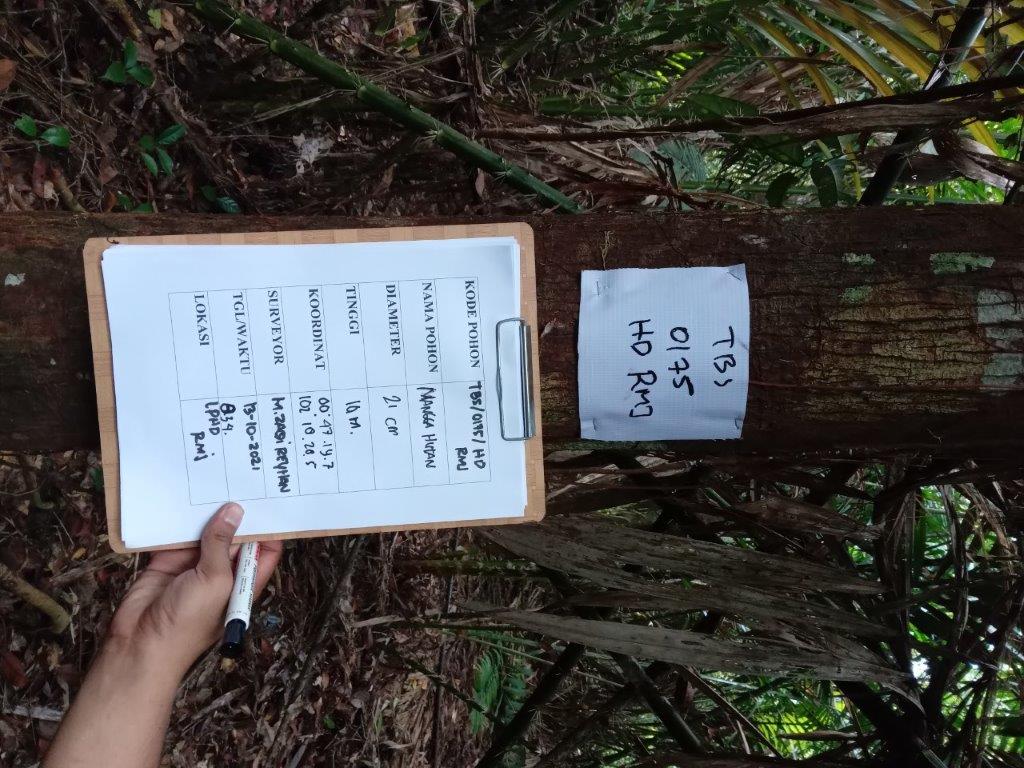 TBS
0175
HD RMJ
KODE POHON TBS/0175/ HD
RMJ
NAMA POHON MANGGA HUTAN
DIAMETER 21 cm
TINGGI 10 M.
KOORDINAT 00°47.19.7
102°10.20.5
SURVEYOR M.ZAQI REYHAN
TGL/WAKTU 13-10-2021
8.34.
LOKASI LPHD
RMJ